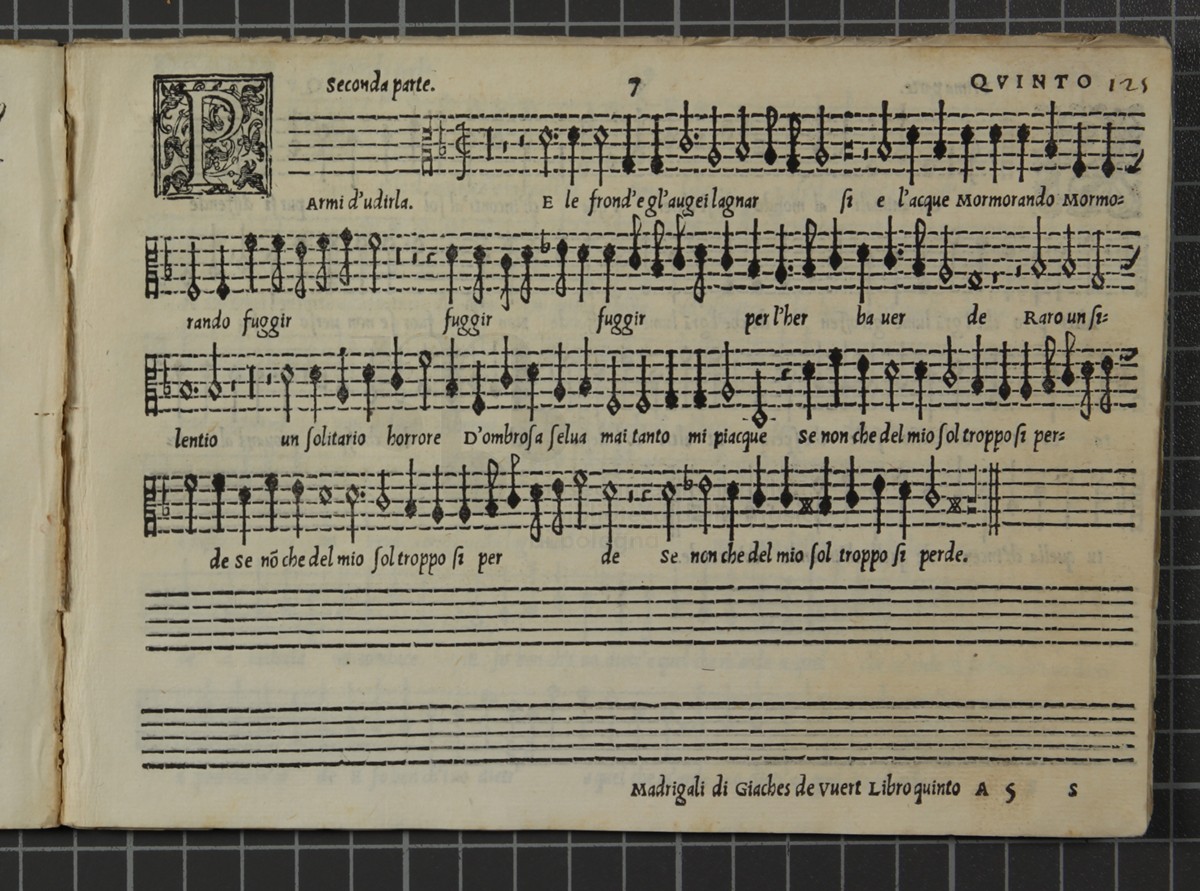 Seconda parte. 7 QVINTO 125
P Armi d'udirla. E le frond'e gl'augei lagnar si e l'acque Mormorando Mormo=
rando fuggir fuggir fuggir per l'her ba uer de Raro un si=
lentio un solitario horrore D'ombrosa selua mai tanto mi piacque Se non che del mio sol troppo si per=
de Se nõ che del mio sol troppo si per de Se non che del mio sol troppo si perde.
Madrigali di Giaches de Vuert Libro quinto A 5 S